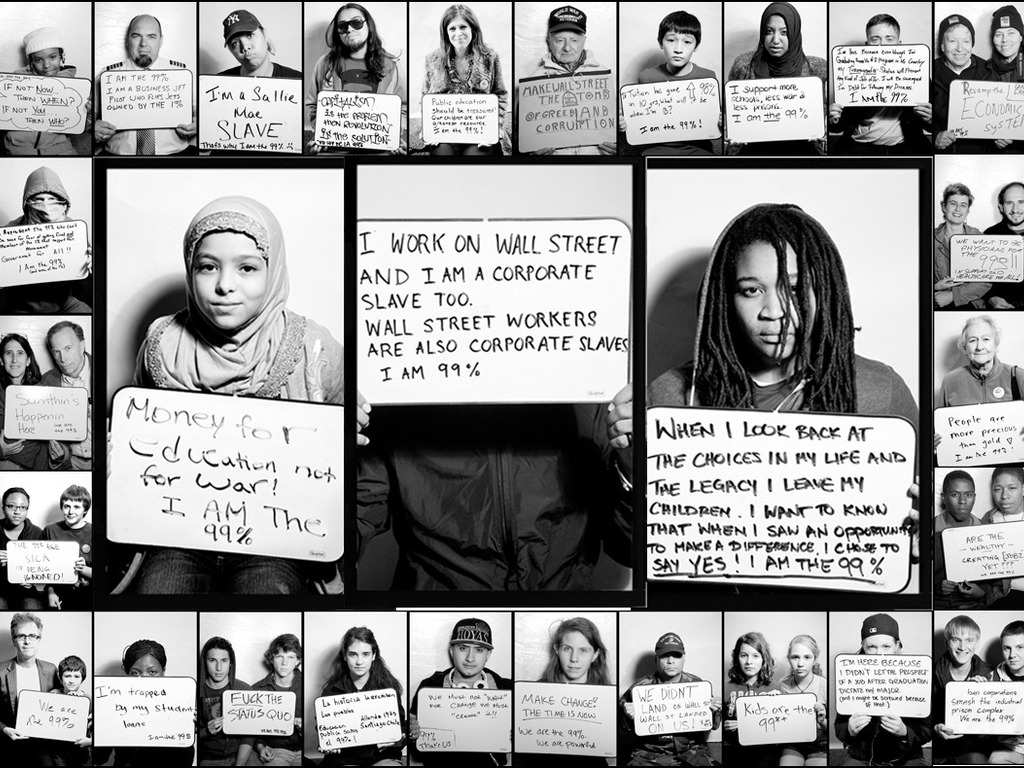 IF NOT NOW..
THEN WHEN?
IF NOT YOU
THEN WHO?
I AM THE 99%
I AM A BUSINESS JET
PILOT WHO FLIES JETS
OWNED BY THE 1%
NY
I'm a Sallie
Mae
SLAVE
That's why I am the 99%
CAPITALISM
IS THE PROBLEM
THEN REVOLUTION
IS THE SOLUTION
Public education
should be treasured
Our children are our
greatest resource
I am the 99%!
WORLD WAR
VETERAN
MAKE WALL STREET
THE TOMB
OF GREED AND
CORRUPTION
I am the 99%!
I support more
schools, less war &
less prisons.
I am the 99%
I Am the 99%
Revamp the
ECONOMIC
SYSTEM
Government for All!!
I Am the 99%
Money for
education not
for War!
I AM The
99%
I WORK ON WALL STREET
AND I AM A CORPORATE
SLAVE TOO.
WALL STREET WORKERS
ARE ALSO CORPORATE SLAVES
I AM 99%
WHEN I LOOK BACK AT
THE CHOICES IN MY LIFE AND
THE LEGACY I LEAVE MY
CHILDREN. I WANT TO KNOW
THAT WHEN I SAW AN OPPORTUNITY
TO MAKE A DIFFERENCE. I CHOSE TO
SAY YES! I AM THE 99%
WE WANT TO BE
PHYSICIANS FOR
THE 99%!!
Sumthin's
Happenin
Here
we are
the 99%
People are
more precious
than gold
I am the 99%!
SICK
OF BEING
IGNORED!
ARE THE
- WEALTHY -
CREATING JOBS
YET???
We are
the 99%
I'm trapped
by my student
loans
I am the 99%
FUCK THE
STATUS QUO
La historia la escriben
los pueblos
Educación
publica
Santiago Chile
el 99%!
HOYAS
We Must Not "WAIT"
FOR CHANGE WE MUST
"CREATE" it!!
99%
THAT'S US
MAKE CHANGE!
THE TIME IS NOW
We are the 99%.
We are powerful.
WE DIDN'T
LAND ON WALL ST
WALL ST LANDED
ON US!
Kids are the
99%
I'M HERE BECAUSE
I DIDN'T LET THE PROSPECT
OF A JOB AFTER GRADUATION
DICTATE MY MAJOR
(and I might be screwed because
of that)
ban corporations
Smash the industrial
prison complex
We are the 99%